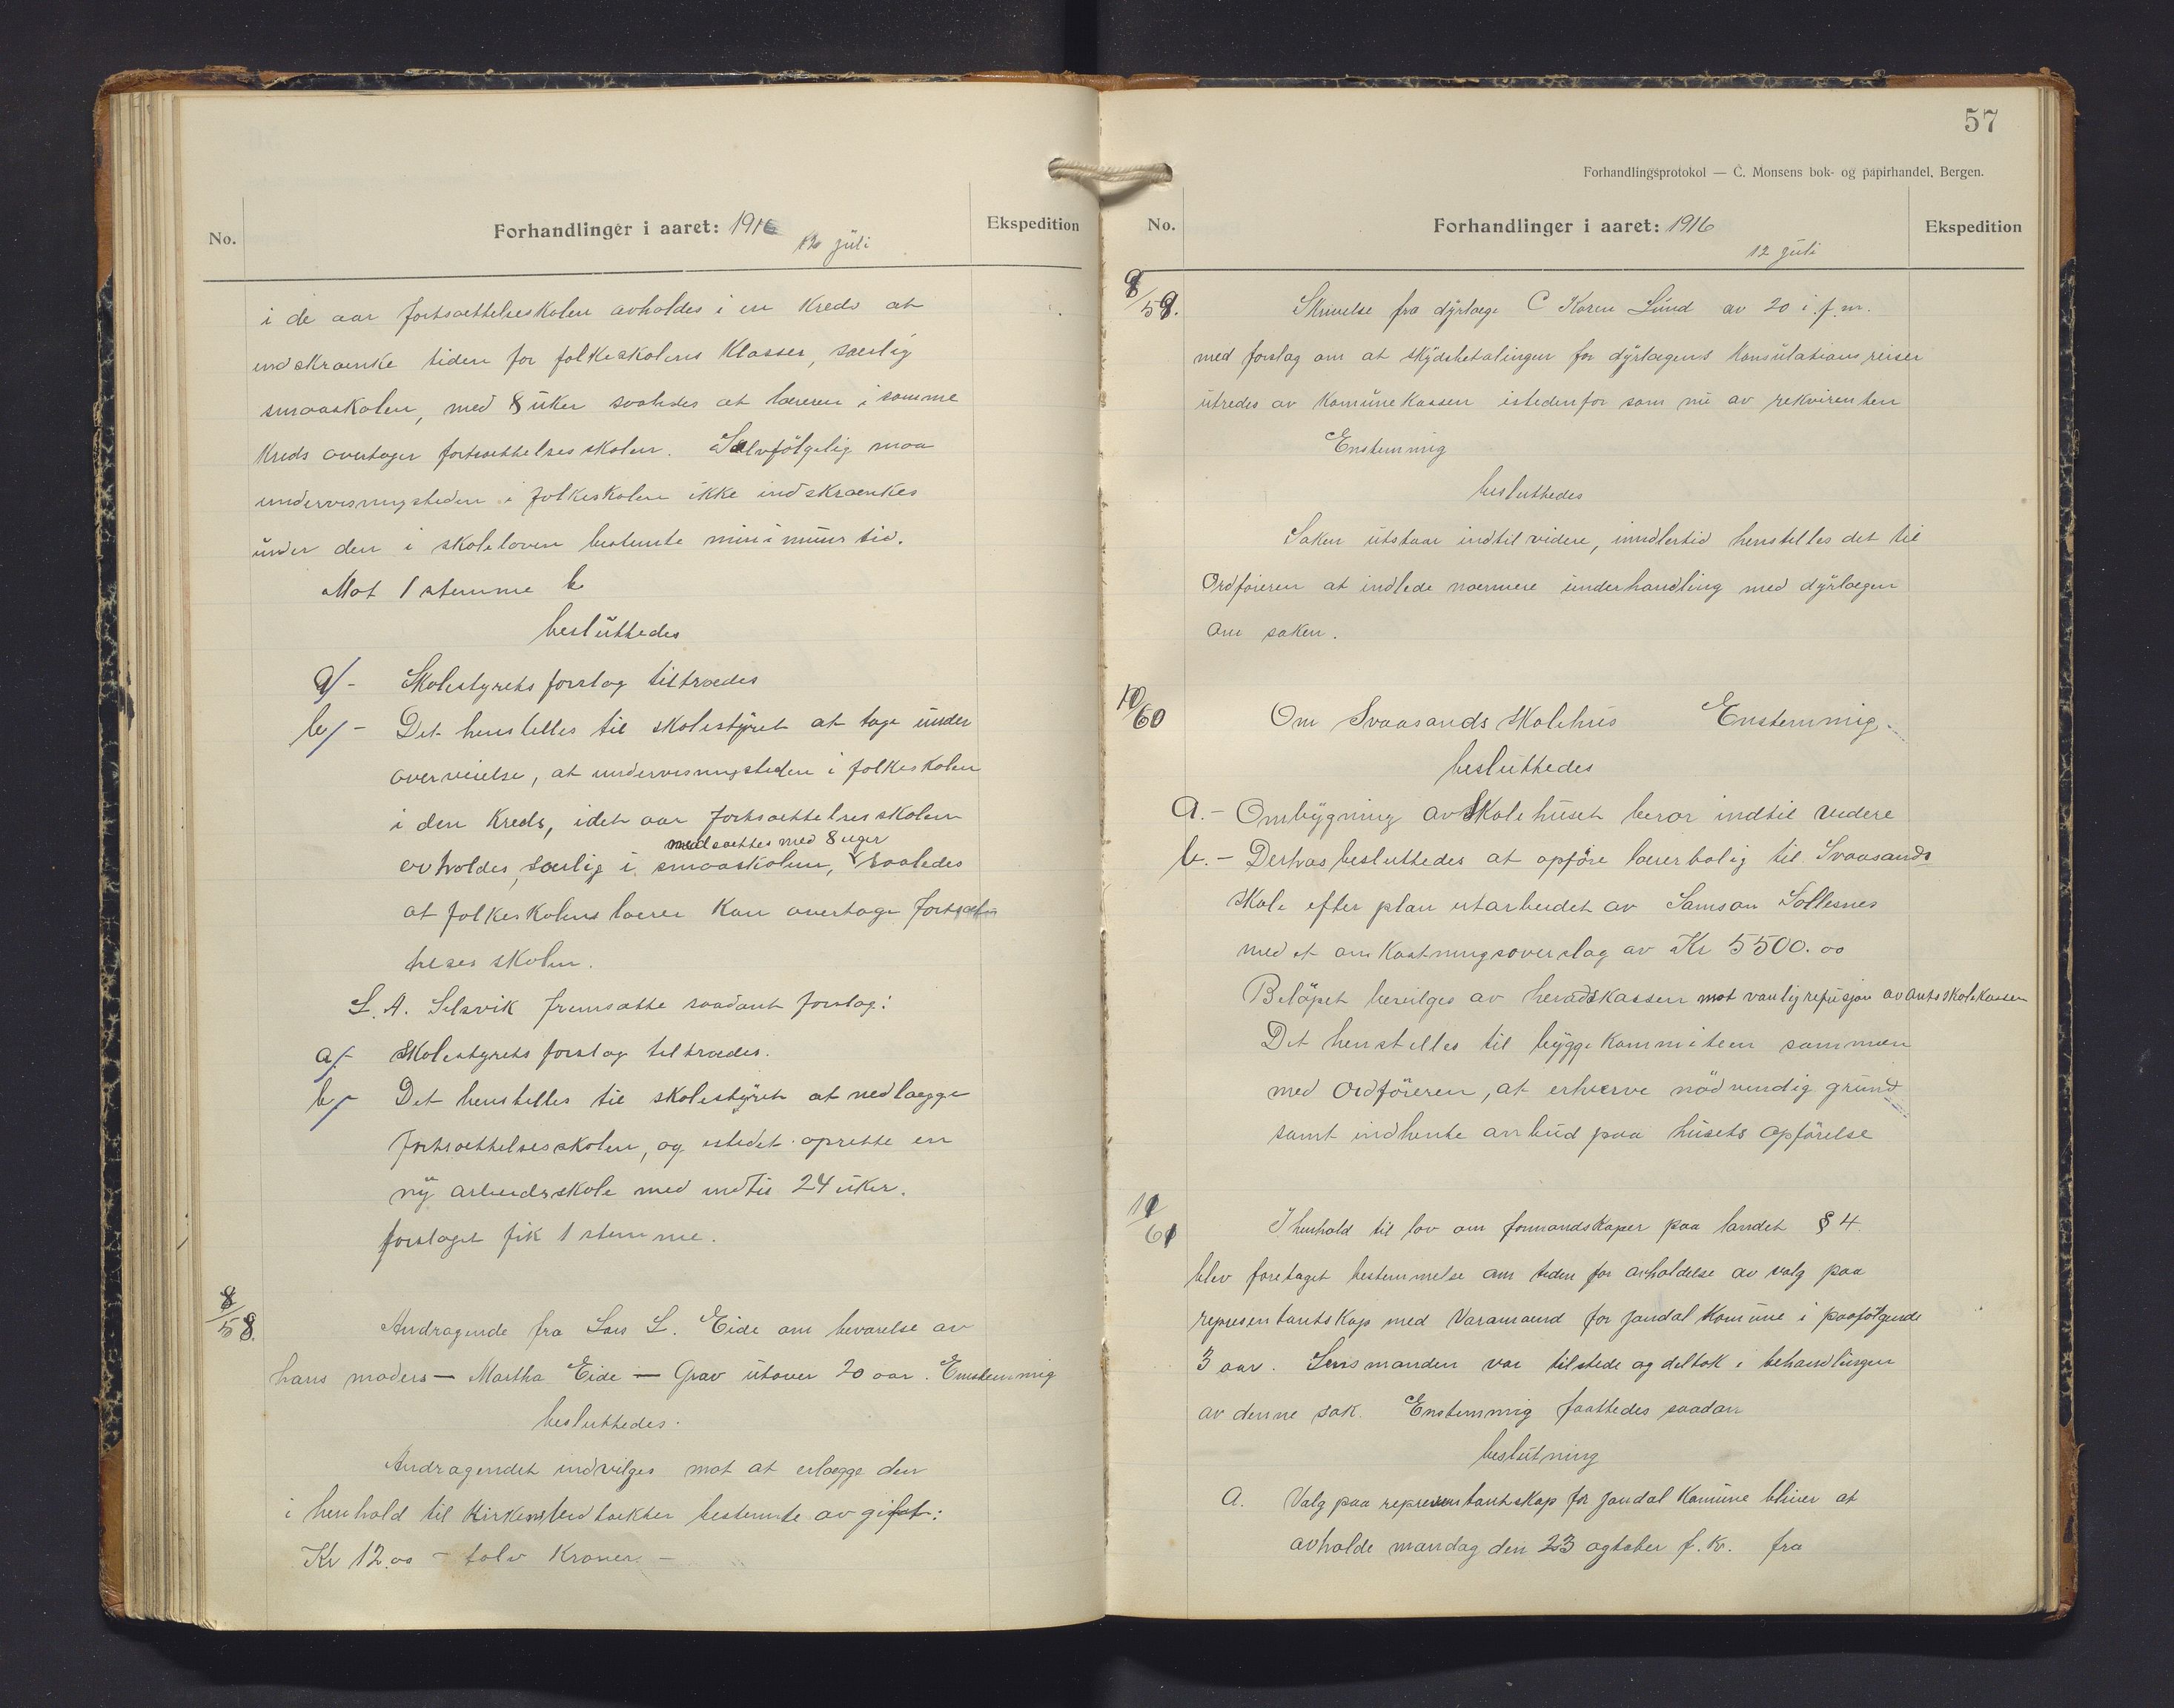 No.
Forhandlinger i aaret: 1916
12 juli
Ekspedition
i de aar fortsættelseskolen avholdes i en kreds at
indskrænke tiden for folkeskolens klasser, særlig
smaaskolen, med 8 uker saaledes at læreren i samme
kreds overtager fortsættelsesskolen. Selvfølgelig maa
undervisningstiden i folkeskolen ikke indskrænkes
under den i skoleloven bestemte minimumstid.
Mot 1 stemme
besluttedes
a/- Skolestyrets forslag tiltrædes
b/- Det henstilles til skolestyret at tage under
overveielse, at undervisningstiden i folkeskolen
i den kreds, idet aar fortsættelsesskolen
nedsættes med 8 uger
avholdes, særlig i smaaskolen, saaledes
at folkeskolens lærer kan overtage fortsæt
helses skolen.
L. A. Selsvik fremsatte saadant forslag:
a/- Skolestyrets forslag tiltrædes.
b/- Det henstilles til skolestyret at nedlægge
fortsættelsesskolen, og istedet oprette en
ny arbeidsskole med indtil 24 uker.
forslaget fik 1 stemme.
8/58.
Andragende fra Lars L. Eide om bevarelse av
hans moders — Martha Eide — Grav utover 20 aar. Enstemmig
besluttedes.
Andragendet indvilges mot at erlægge den
i henhold til kirken vedtækter bestemte avgift:
Kr 12.00 – tolv Kroner. –
57
Forhandlingsprotokol — C. Monsens bok- og papirhandel, Bergen.
No.
Forhandlinger i aaret: 1916
12 juli
Ekspedition
9/59.
Skrivelse fra dyrlæge C Koren Lund av 20 i. f. m.
med forslag om at skydsbetalingen for dyrlægens konsulationsreiser
utredes av Komunekassen istedenfor som nu av rekvirenten
Enstemmig
besluttedes
Saken utstaar indtil videre, imidlertid henstilles det til
Ordføreren at indlede nærmere underhandling med dyrlægen
om saken.
10/60
Om Svaasands Skolehus Enstemmig
besluttedes
a. – Ombygning av Skolehuset beror indtil videre
b. – Derhos besluttedes at opføre lærerbolig til Svaasands
Skole efter plan utarbeidet av Samson Sollesnes
med et omkostningsoverslag av Kr 5500.00
Beløpet bevilges av heradskassen mot vanlig refusjon av amtsskolekassen
Det henstilles til byggekommiteen sammen
med Ordføreren, at erhverve nødvendig grund
samt indhente anbud paa husets opførelse
11/61
I henhold til lov om formandskaper paa landet § 4
blev foretaget bestemmelse om tiden for avholdelse av valg paa
representantskap med Varamænd for Jondal Komune i paafølgende
3 aar. Lensmanden var tilstede og deltok i behandlingen
av denne sak. Enstemmig fattedes saadan
beslutning
a. Valg paa representantskap for Jondal Komune bliver at
avholde mandag den 23 ogtober f. k. fra